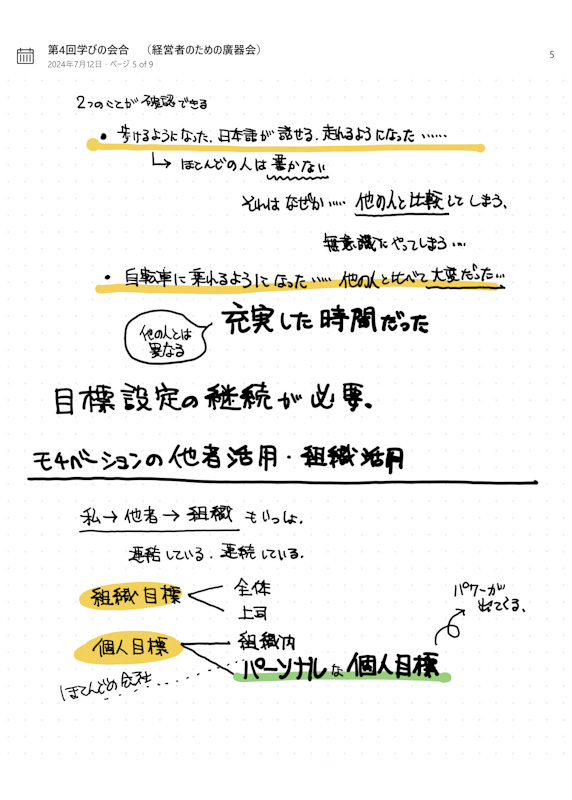 第4回学びの会合 （経営者のための廣器会）
2024年7月12日・ページ 5 of 9
5
2つのことが確認できる
• 歩けるようになった、日本語が話せる、走れるようになった……
→ ほとんどの人は書かない
それはなぜか…… 他の人と比較してしまう、
無意識にやってしまう…
• 自転車に乗れるようになった…… 他の人と比べて大変だった…
他の人とは
異なる
充実した時間だった
目標設定の継続が必要。
モチベーションの他者活用・組織活用
私→他者→組織 もいっしょ.
連結している. 連続している.
組織目標
全体
上司
個人目標
組織内
パーソナルな個人目標
パワーが
出てくる、
ほとんどの会社